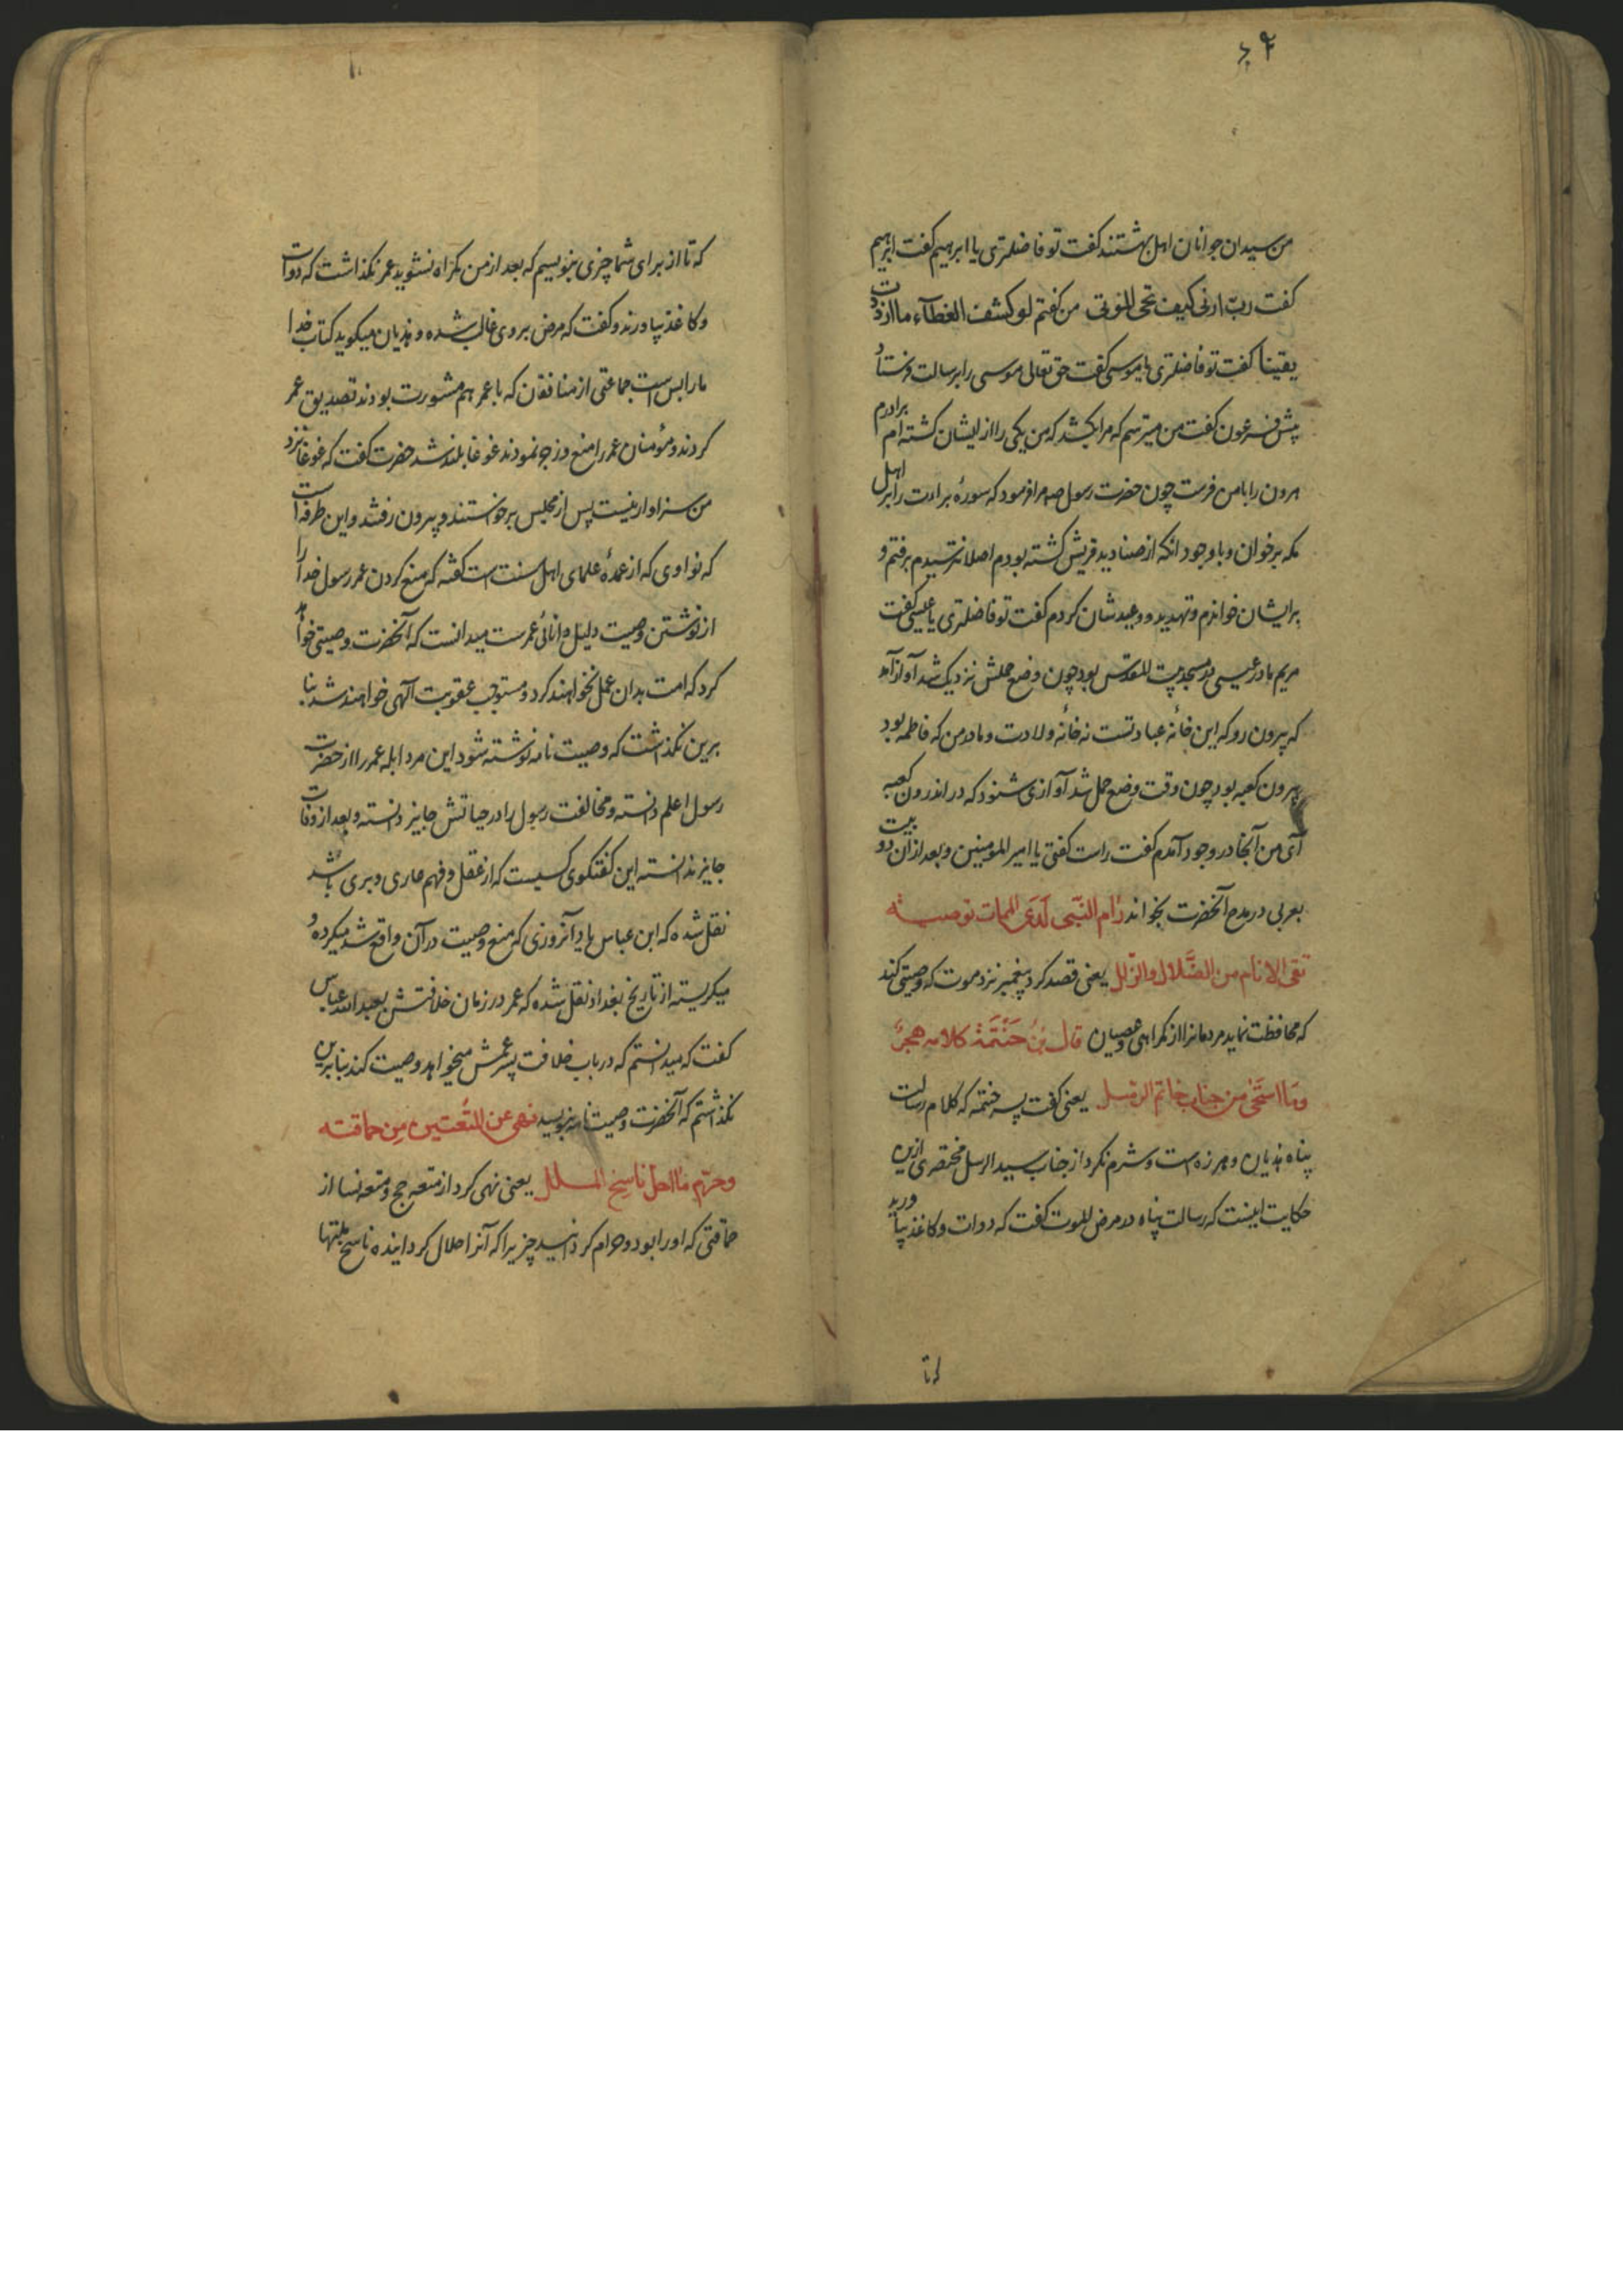 من سیدان جوانان اهل بهشتند کفت تو فاضلتری یا ابرهیم کفت ابرهیم
کفت ربّ ارنی کیف تحی الموتی من کفتم لو کشف الغطآء ما ازددت
یقینا کفت تو فاضلتری یا موسی کفت حق تعالی موسی را برسالت فرستاد
پیش فرعون کفت من میترسم که مرا بکشد که من یکی را از ایشان کشته ام برادرم
هرون را با من فرست چون حضرت رسول صه مرا فرمود که سورهٔ براءت را بر اهل
مکه برخوان و با وجود انکه از صنادید قریش کشته بودم اصلا نترسیدم برفتم و
برایشان خواندم و تهدید و وعیدشان کردم کفت تو فاضلتری یا عیسی کفت
مریم مادر عیسی در مسجد بیت المقدس بود چون وضع حملش نزدیک شد آواز آمد
که بیرون رو که این خانهٔ عبادتست نه خانهٔ ولادت و مادر من که فاطمه بود
بیرون کعبه بود چون وقت وضع حمل شد آوازی شنود که در اندرون کعبه
آی من آنجا در وجود آمدم کفت راست کفتی یا امیر المومنین و بعد از ان دو بیت
بعربی در مدح آنحضرت بخواند رام النّبی لَدَی الممات توصیه
تقی الانام من الضّلال والزلل یعنی قصد کرد پیغمبر نزد موت که وصیتی کند
که محافظت نماید مردمانرا از کمراهی و عصیان قال بنُ حَنْتَمَة کلامه هجرٌ
وما استحی من جناب خاتم الرسل یعنی کفت پسر حنتمه که کلام رسالت
پناه هذیان و هرزه است و شرم نکرد از جناب سید الرسل مختصری ازین
حکایت اینست که رسالت پناه در مرض الموت کفت که دوات و کاغذ بیاورید
که تا
که تا از برای شما چیزی بنویسم که بعد از من کمراه نشوید عمر نکذاشت که دوات
و کاغذ بیاورند و کفت که مرض بر وی غالب شده و هذیان میکوید کتاب خدا
ما را بس است جماعتی از منافقان که با عمر هم مشورت بودند تصدیق عمر
کردند و مؤمنان عمر را منع و زجر نمودند غوغا بلند شد حضرت کفت که غوغا نزد
من سزاوار نیست پس از مجلس برخواستند و بیرون رفتند و این طرفه است
که نواوی که از عمدهٔ علمای اهل سنت است کفته که منع کردن عمر رسول خدا را
از نوشتن وصیت دلیل دانائی عمرست میدانست که آنحضرت وصیتی خواهد
کرد که امت بدان عمل نخواهند کرد و مستوجب عقوبت آلهی خواهند شد بنا
برین نکذاشت که وصیت نامه نوشته شود این مرد ابله عمر را از حضرت
رسول اعلم دانسته و مخالفت رسول را در حیاتش جایز دانسته و بعد از وفات
جایز ندانسته این کفتکوی کسیست که از عقل و فهم عاری و بری باشد
نقل شده که ابن عباس یاد آنروزی که منع وصیت در آن واقع شد میکرده و
میکریسته از تاریخ بغداد نقل شده که عمر در زمان خلافتش بعبد الله عباس
کفت که میدانستم که در باب خلافت پسر عمش میخواهد وصیت کند بنابرین
نکذاشتم که آنحضرت وصیت نامه بنویسد نهی عن المتعتین من حماقته
وحرّم ما احل ناسخ الملل یعنی نهی کرد از متعه حج و متعه نسا از
حماقتی که او را بود و حرام کردانید چیزیرا که آنرا حلال کردانیده ناسخ ملتها